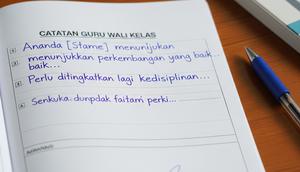 CATATAN GURU WALI KELAS
1 Ananda [Stame] menunjukan
2 menunjukkan perkembangan yang baik...
baik...
3 Perlu ditingkatkan lagi kedisiplinan...
4 Senkuka dunpdak faitam perki...